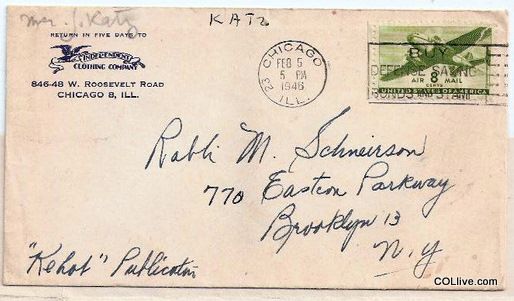 Mr. J. Katz
KATZ
RETURN IN FIVE DAYS TO
INDEPENDENT
CLOTHING COMPANY
846-48 W. ROOSEVELT ROAD
CHICAGO 8, ILL.
CHICAGO
23
FEB 5
5 PM
1946
ILL.
BUY
DEFENSE SAVING
BONDS AND STAMP
AIR 8 MAIL
CENTS
UNITED STATES OF AMERICA
Rabbi M. Schneirson
770 Eastern Parkway
Brooklyn 13
N.Y
"Kehot" Publication
COLlive.com